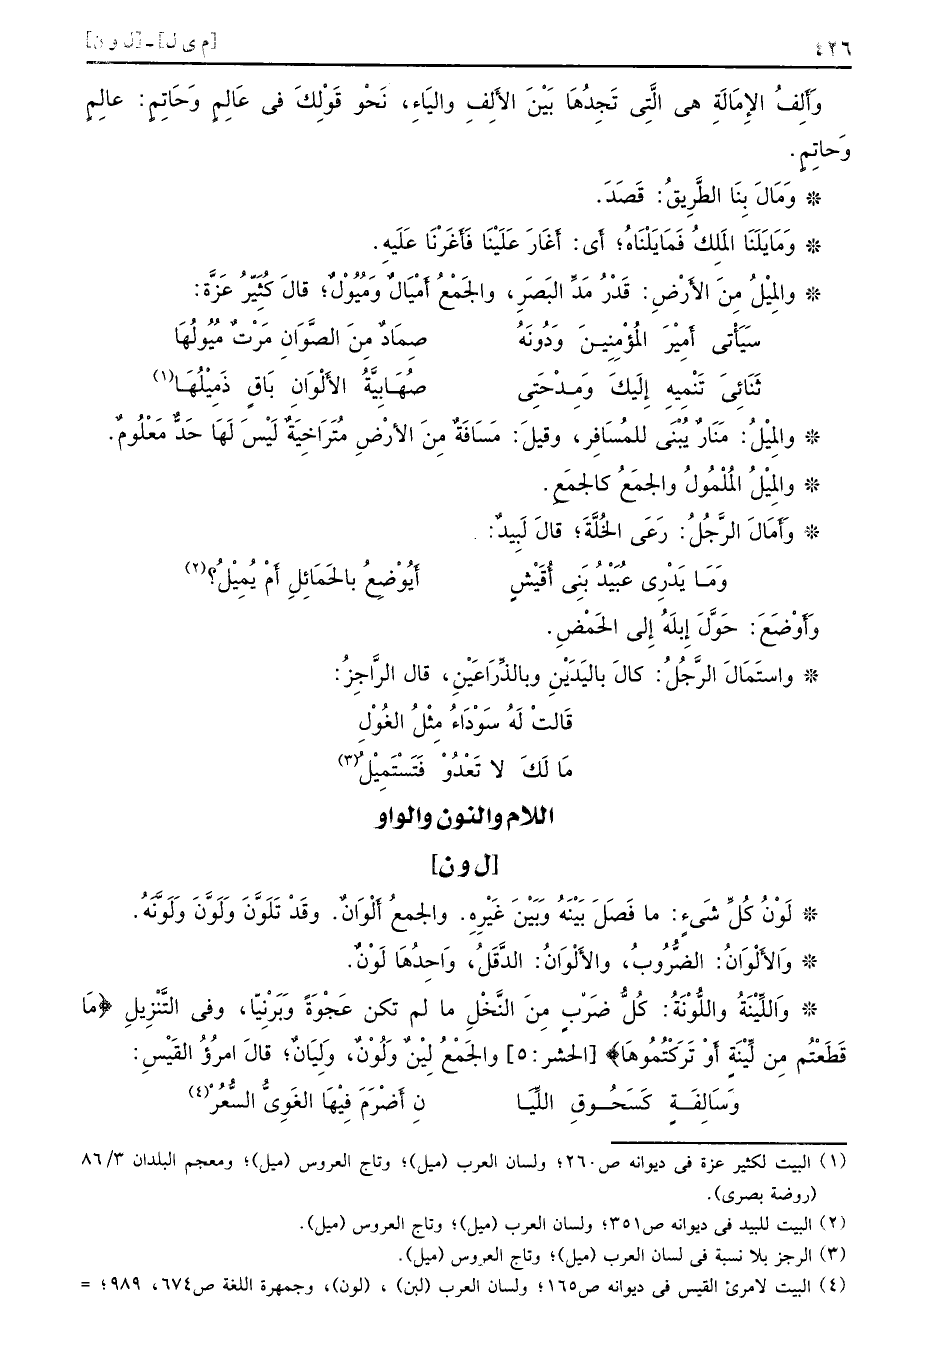 ٤٢٦
[م ى ل] - [ل و ن]
وَأَلِفُ الإِمَالَةِ هى الَّتِى تَجِدُهَا بَيْنَ الأَلِفِ واليَاءِ، نَحْو قَوْلِكَ فى عَالِمٍ وَحَاتِمٍ: عالِمٍ
وَحاتِمٍ.
* وَمَالَ بِنَا الطَّرِيقُ: قَصَدَ.
* وَمَايَلَنَا المَلِكُ فَمَايَلْنَاهُ؛ أى: أغَارَ عَلَيْنَا فَأَغَرْنَا عَلَيهِ.
* والمِيْلُ مِنَ الأَرْضِ: قَدْرُ مَدِّ البَصَرِ، والجَمْعُ أمْيَالٌ وَمُيُوْلٌ؛ قالَ كُثَيِّرُ عَزَّةَ:
سَيَأْتى أمِيْرَ المُؤْمِنِيـنَ وَدُونَهُ صِمَادٌ مِنَ الصَّوَّانِ مَرْتٌ مُيُولُهَا
ثَنَائِىَ تَنْمِيهِ إلَيكَ وَمِـدْحَتِى صُهَـابِيَّةُ الأَلْوَانِ بَاقٍ ذَمِيْلُهَـا(١)
* والمِيْلُ: مَنَارٌ يُبْنَى للمُسَافِرِ، وقيلَ: مَسَافَةٌ مِنَ الأرْضِ مُتَرَاخِيَةٌ لَيْسَ لَهَا حَدٌّ مَعْلُومٌ.
* والمِيْلُ المُلْمُولُ والجَمعُ كالجَمعِ.
* وَأمَالَ الرَّجُلُ: رَعَى الخُلَّةَ؛ قالَ لَبِيدٌ:
وَمَـا يَدْرِى عُبَيْدُ بَنِى أُقَيْشٍ أَيُوْضِعُ بالحَمَائلِ أمْ يُمِيْلُ؟(٢)
وَأَوْضَعَ: حَوَّلَ إبلَهُ إلى الحَمْضِ.
* واستَمَالَ الرَّجُلُ: كالَ باليَدَيْنِ وبالذِّرَاعَيْنِ، قال الرَّاجِزُ:
قَالتْ لَهُ سَوْدَاءُ مِثْلُ الغُوْلِ
مَا لَكَ لا تَغْدُوْ فَتَسْتَمِيْلُ(٣)
اللام والنون والواو
[ل و ن]
* لَوْنُ كُلِّ شَىءٍ: ما فَصَلَ بَيْنَهُ وَبَيْنَ غَيْرِهِ. والجمعُ ألْوَانٌ. وقَدْ تَلَوَّنَ وَلَوَّنَ وَلَوَّنَهُ.
* وَالأَلْوَانُ: الضُّرُوبُ، والأَلْوَانُ: الدَّقَلُ، وَاحِدُهَا لَوْنٌ.
* وَاللِّيْنَةُ واللُّوْنَةُ: كُلُّ ضَرْبٍ مِنَ النَّخْلِ ما لم تكن عَجْوَةً وَبَرْنِيّا، وفى التَّنْزِيلِ ﴿مَا
قَطَعْتُم مِن لِّيْنَةٍ أوْ تَرَكْتُمُوهَا﴾ [الحشر:٥] والجَمْعُ لِيْنٌ وَلُوْنٌ، وَلِيَانٌ؛ قالَ امرُؤُ القَيْسِ:
وَسَالِفَــةٍ كَسَحُــوقِ اللِّيَـا نِ أضْرَمَ فِيْهَا الغَوِىُّ السُّعُرْ(٤)
(١) البيت لكثير عزة فى ديوانه ص٢٦٠؛ ولسان العرب (ميل)؛ وتاج العروس (ميل)؛ ومعجم البلدان ٨٦/٣
(روضة بصرى).
(٢) البيت للبيد فى ديوانه ص٣٥١؛ ولسان العرب (ميل)؛ وتاج العروس (ميل).
(٣) الرجز بلا نسبة فى لسان العرب (ميل)؛ وتاج العروس (ميل).
(٤) البيت لامرئ القيس فى ديوانه ص١٦٥؛ ولسان العرب (لبن) ، (لون)، وجمهرة اللغة ص٦٧٤، ٩٨٩؛ =